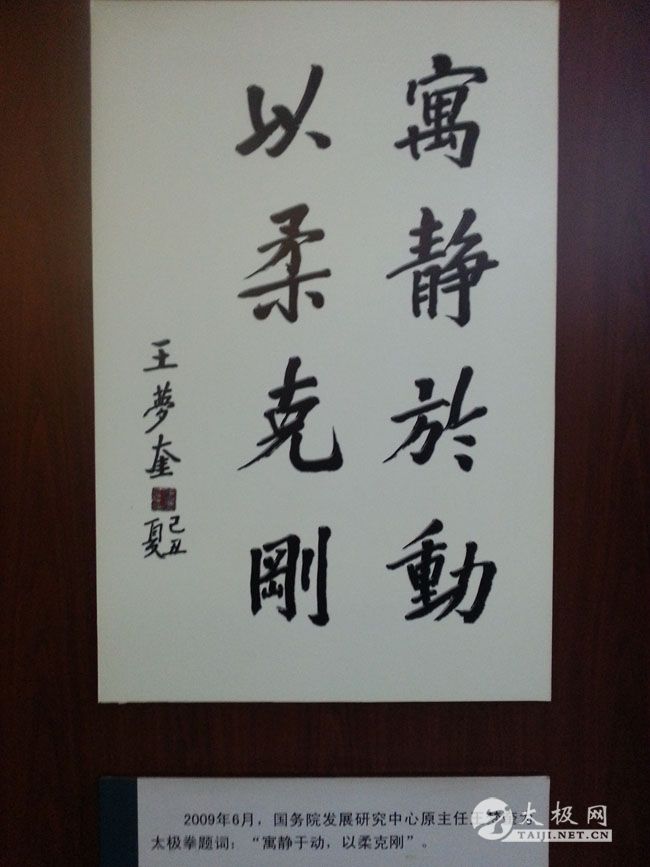 寓靜於動
以柔克剛
王夢奎
己丑
夏
2009年6月，国务院发展研究中心原主任王梦奎为
太极拳题词：“寓静于动，以柔克刚”。
太极网
TAIJI.NET.CN